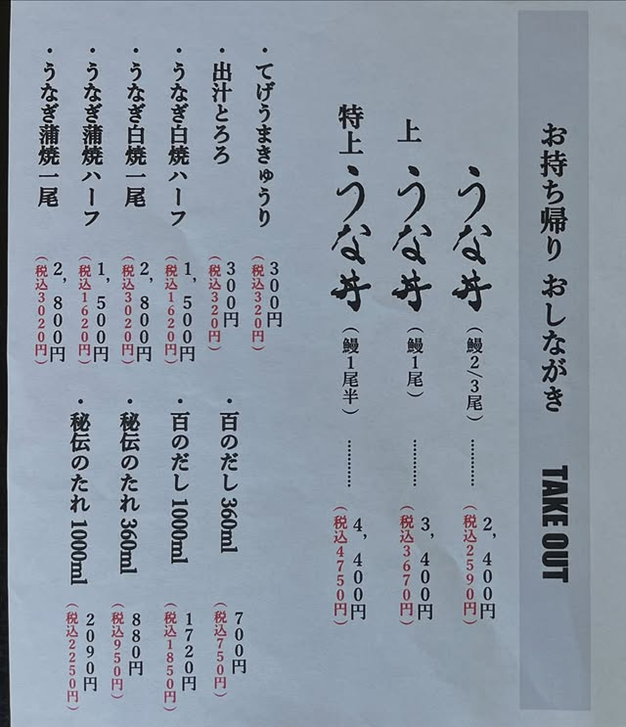 お持ち帰り おしながき TAKE OUT
うな丼(鰻2/3尾)………2,400円
(税込2590円)
上 うな丼(鰻1尾)………3,400円
(税込3670円)
特上 うな丼(鰻1尾半)………4,400円
(税込4750円)
・てげうまきゅうり 300円
(税込320円)
・出汁とろろ 300円
(税込320円)
・うなぎ白焼ハーフ 1,500円
(税込1620円)
・うなぎ白焼一尾 2,800円
(税込3020円)
・うなぎ蒲焼ハーフ 1,500円
(税込1620円)
・うなぎ蒲焼一尾 2,800円
(税込3020円)
・百のだし 360ml 700円
(税込750円)
・百のだし 1000ml 1720円
(税込1850円)
・秘伝のたれ 360ml 880円
(税込950円)
・秘伝のたれ 1000ml 2090円
(税込2250円)